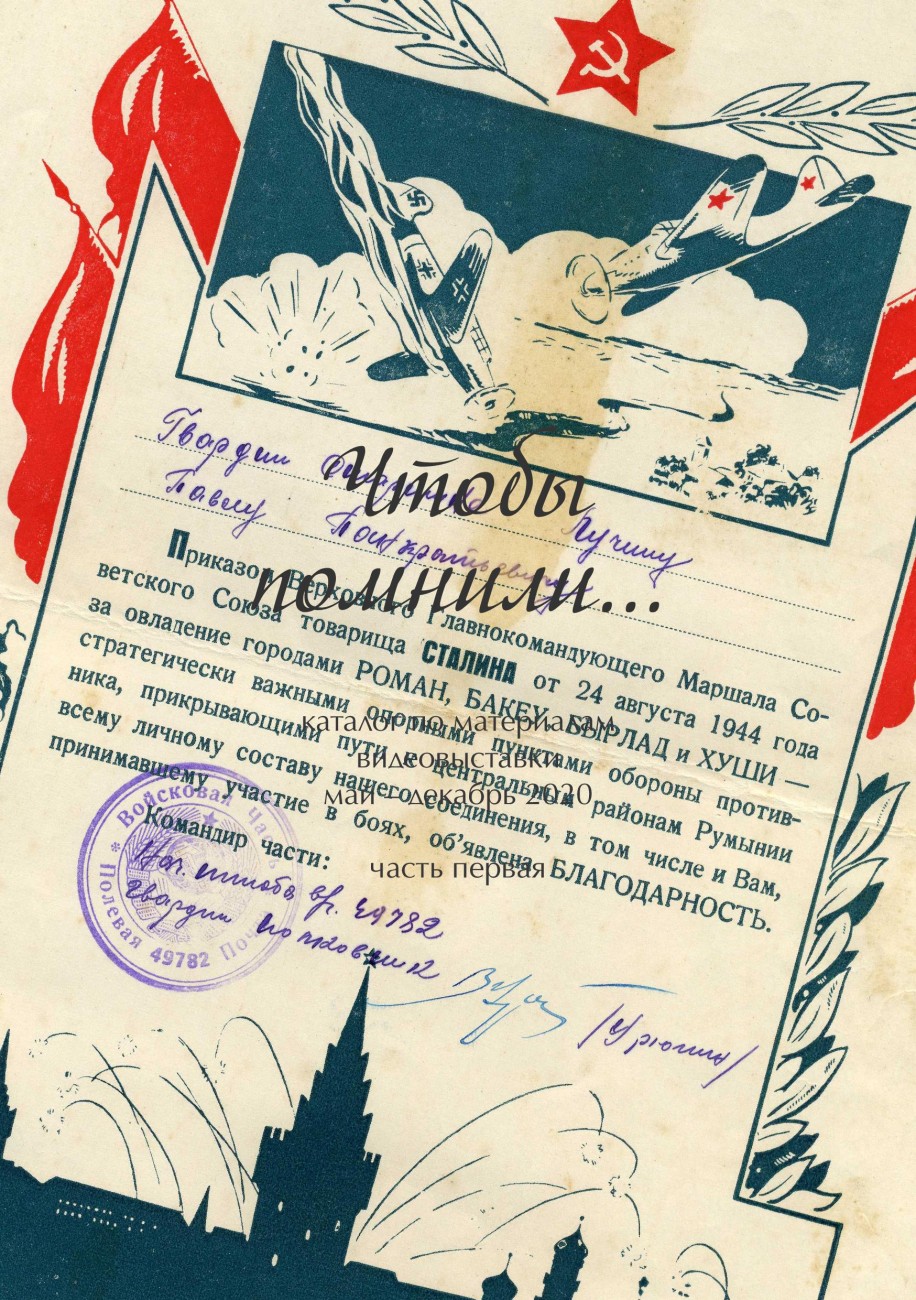 Гвардии Лучину
Павлу Панкратьевичу
Чтобы
помнили...
Приказом Верховного Главнокомандующего Маршала Со-
ветского Союза товарища СТАЛИНА от 24 августа 1944 года
за овладение городами РОМАН, БАКЕУ, БЫРЛАД и ХУШИ —
стратегически важными опорными пунктами обороны против-
ника, прикрывающими пути к центральным районам Румынии
всему личному составу нашего соединения, в том числе и Вам,
принимавшему участие в боях, об'явлена БЛАГОДАРНОСТЬ.
каталог по материалам
видеовыставки
май – декабрь 2020
часть первая
Командир части:
Нач. штаба 49782
гвардии полковник
/Урюпин/
Войсковая часть
* Полевая Почта
49782